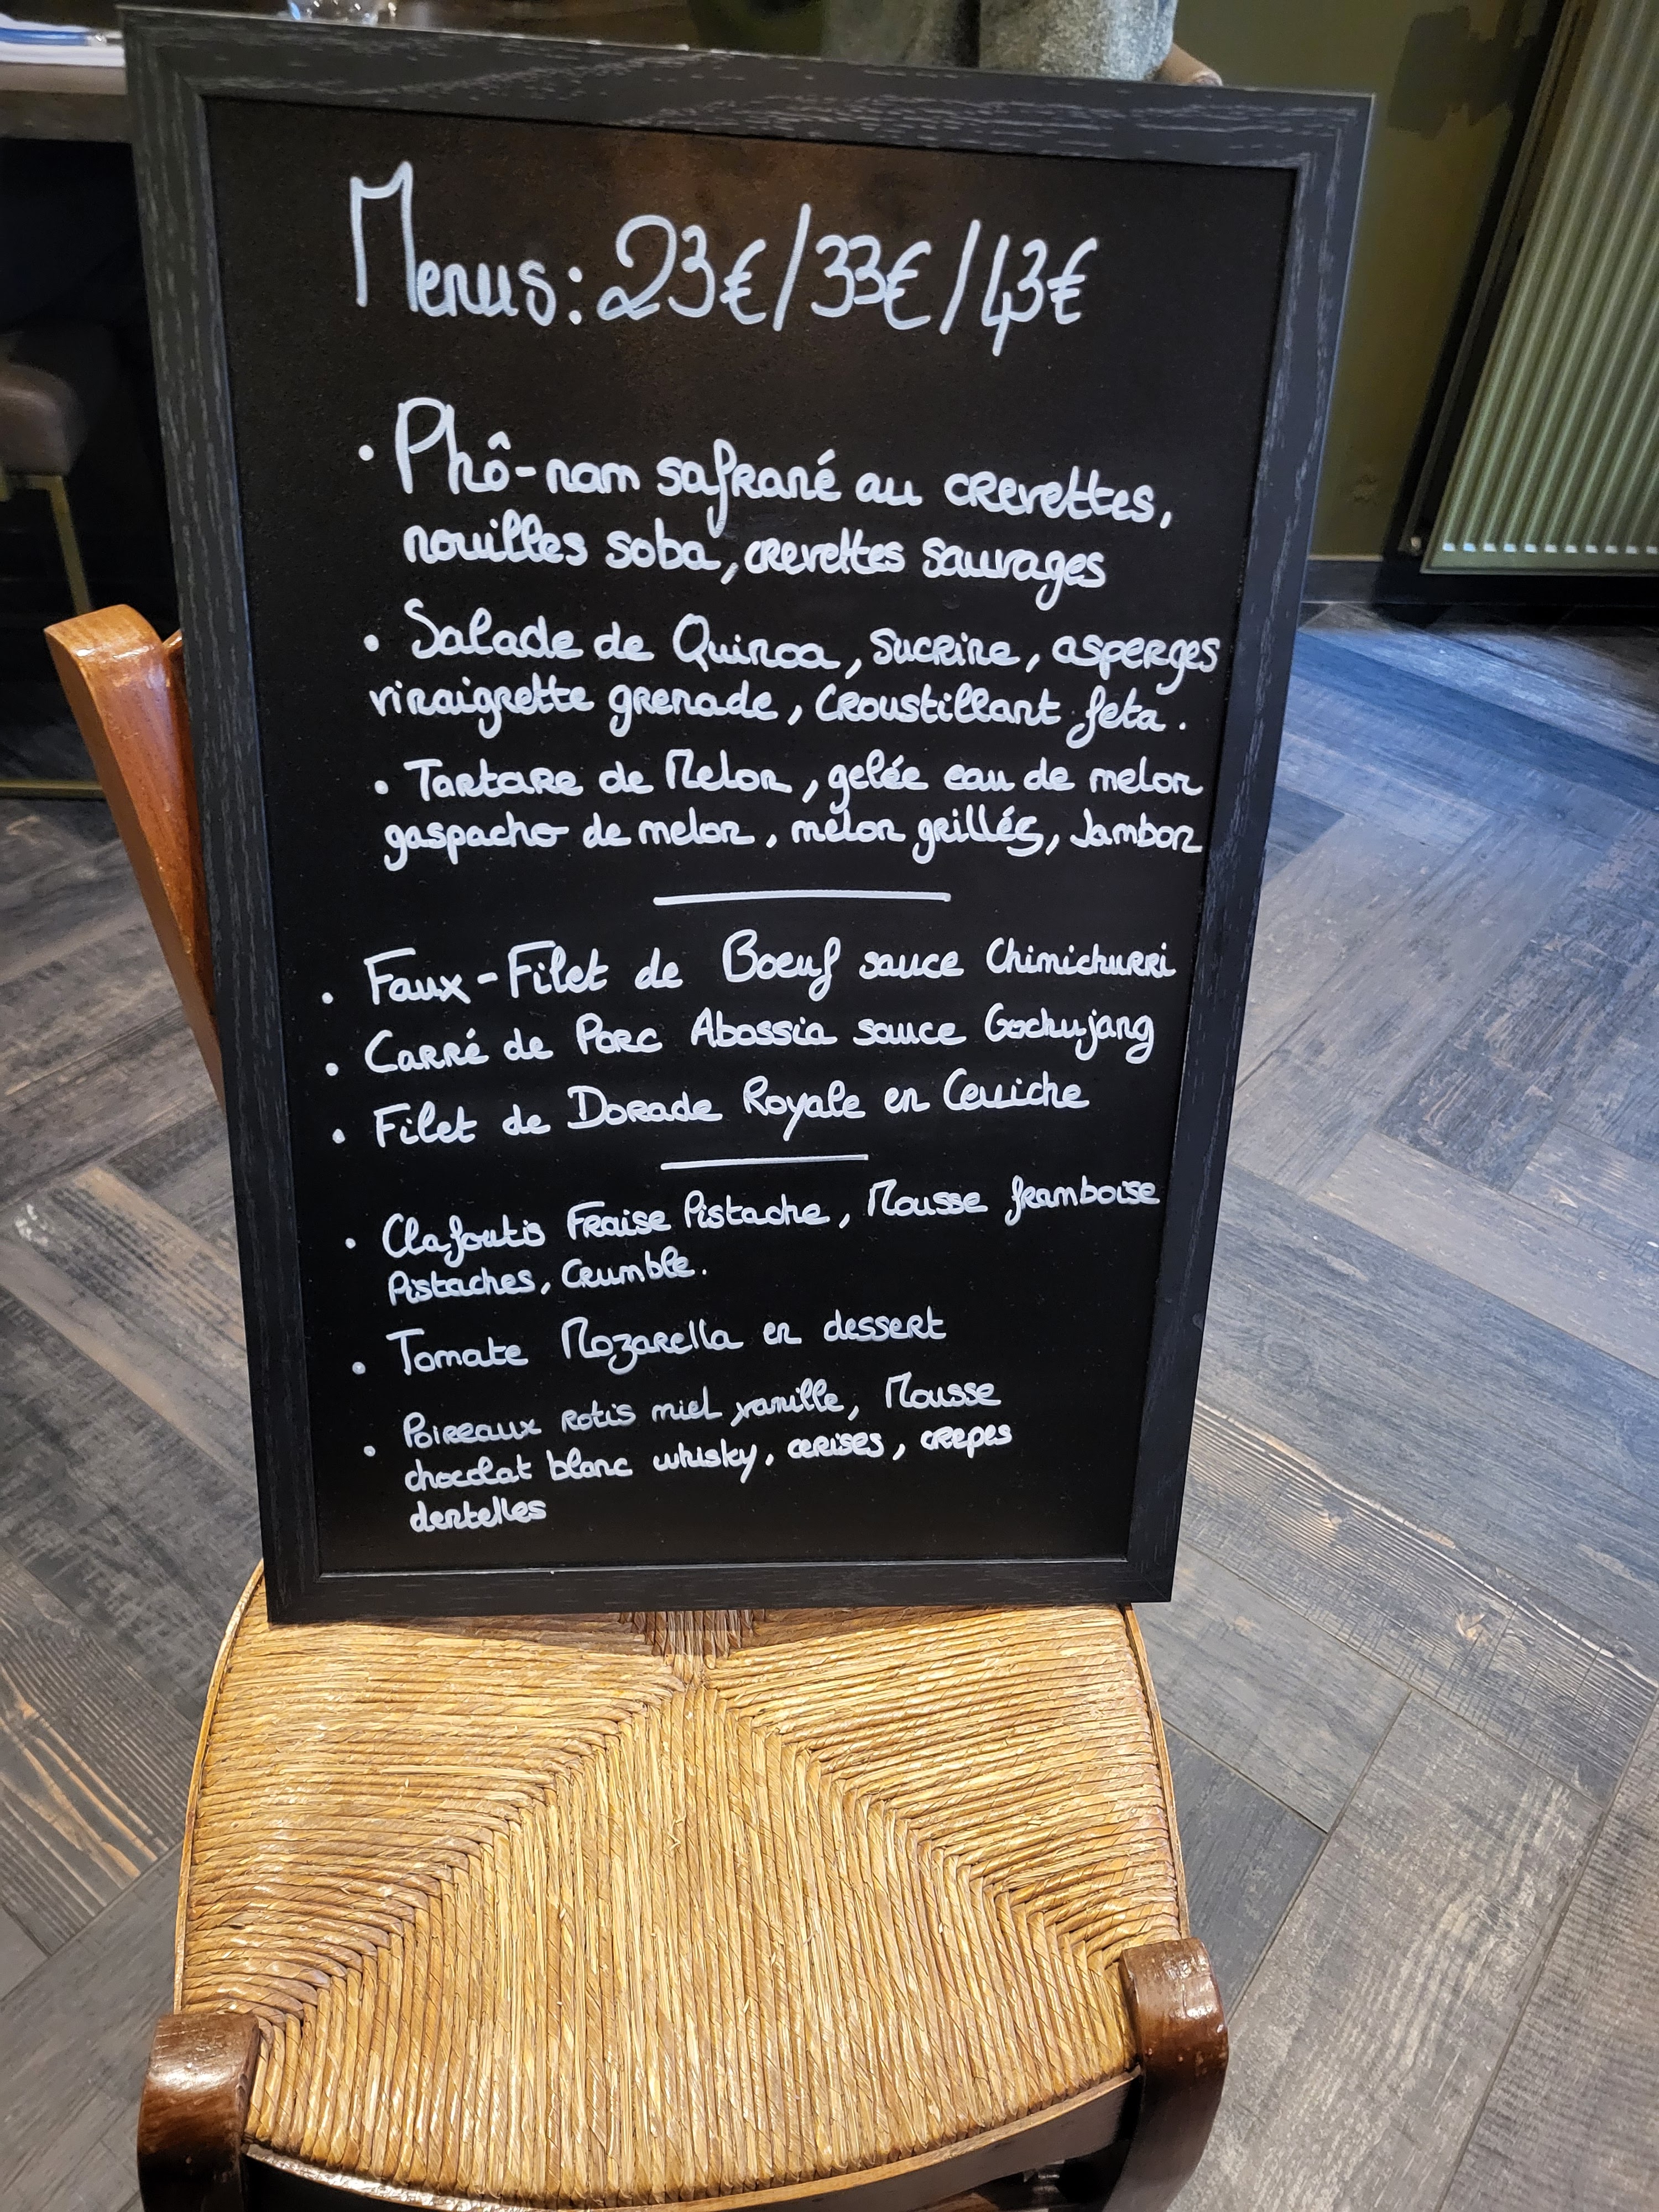 Menus: 23€/33€/43€
• Phô-nam safrané au crevettes,
nouilles soba, crevettes sauvages
• Salade de Quinoa, Sucrine, asperges
vinaigrette grenade, Croustillant feta.
• Tartare de Melon, gelée eau de melon
gaspacho de melon, melon grillés, Jambon
• Faux-Filet de Boeuf sauce Chimichurri
• Carré de Porc Abossia sauce Gochujang
• Filet de Dorade Royale en Ceviche
• Clafoutis Fraise Pistache, Mousse framboise
Pistaches, Crumble.
• Tomate Mozarella en dessert
• Poireaux rotis miel vanille, Mousse
chocolat blanc whisky, cerises, crepes
dentelles